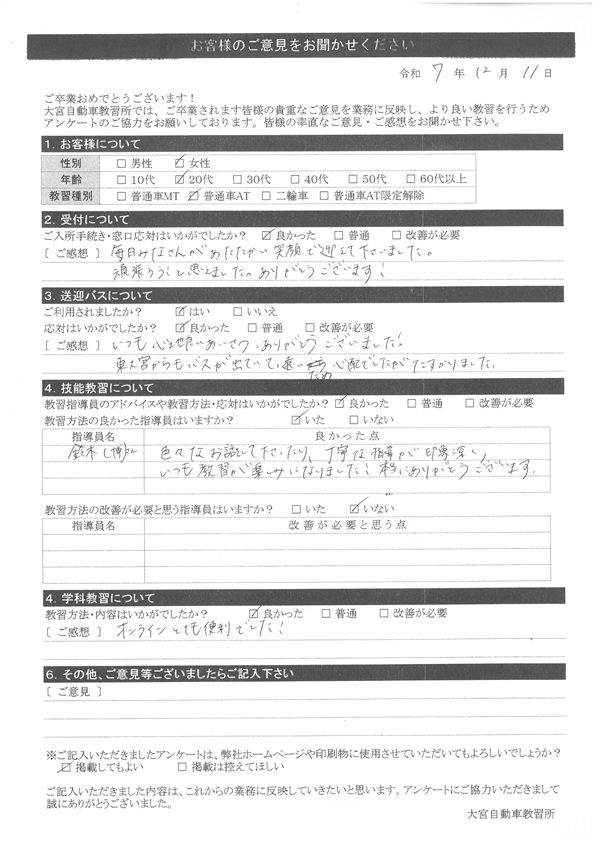 お客様のご意見をお聞かせください
令和 7 年 12 月 11 日
ご卒業おめでとうございます！
大宮自動車教習所では、ご卒業されます皆様の貴重なご意見を業務に反映し、より良い教習を行うため
アンケートのご協力をお願いしております。皆様の率直なご意見・ご感想をお聞かせ下さい。
1. お客様について
性別 □ 男性 ☑ 女性
年齢 □ 10代 ☑ 20代 □ 30代 □ 40代 □ 50代 □ 60代以上
教習種別 □ 普通車MT ☑ 普通車AT □ 二輪車 □ 普通車AT限定解除
2. 受付について
ご入所手続き・窓口応対はいかがでしたか？ ☑ 良かった □ 普通 □ 改善が必要
[ ご感想 ] 毎日みなさんがあたたかい笑顔で迎えて下さいました。
頑張ろう！と思えました。ありがとうございます！
3. 送迎バスについて
ご利用されましたか？ ☑ はい □ いいえ
応対はいかがでしたか？ ☑ 良かった □ 普通 □ 改善が必要
[ ご感想 ] いつも心地良いあいさつ、ありがとうございました！
東大宮からもバスが出ていて、遠いため心配でしたがたすかりました。
4. 技能教習について
教習指導員のアドバイスや教習方法・応対はいかがでしたか？ ☑ 良かった □ 普通 □ 改善が必要
教習方法の良かった指導員はいますか？ ☑ いた □ いない
指導員名 良かった点
鈴木(博)さん 色々なお話して下さったり、丁寧な指導が印象深く、
いつも教習が楽しみになりました！本当にありがとうございます。
教習方法の改善が必要と思う指導員はいますか？ □ いた ☑ いない
指導員名 改善が必要と思う点
4. 学科教習について
教習方法・内容はいかがでしたか？ ☑ 良かった □ 普通 □ 改善が必要
[ ご感想 ] オンラインとても便利でした！
6. その他、ご意見等ございましたらご記入下さい
[ ご意見 ]
※ご記入いただきましたアンケートは、弊社ホームページや印刷物に使用させていただいてもよろしいでしょうか？
☑ 掲載してもよい □ 掲載は控えてほしい
ご記入いただきました内容は、これからの業務に反映していきたいと思います。アンケートにご協力いただきまして
誠にありがとうございました。
大宮自動車教習所